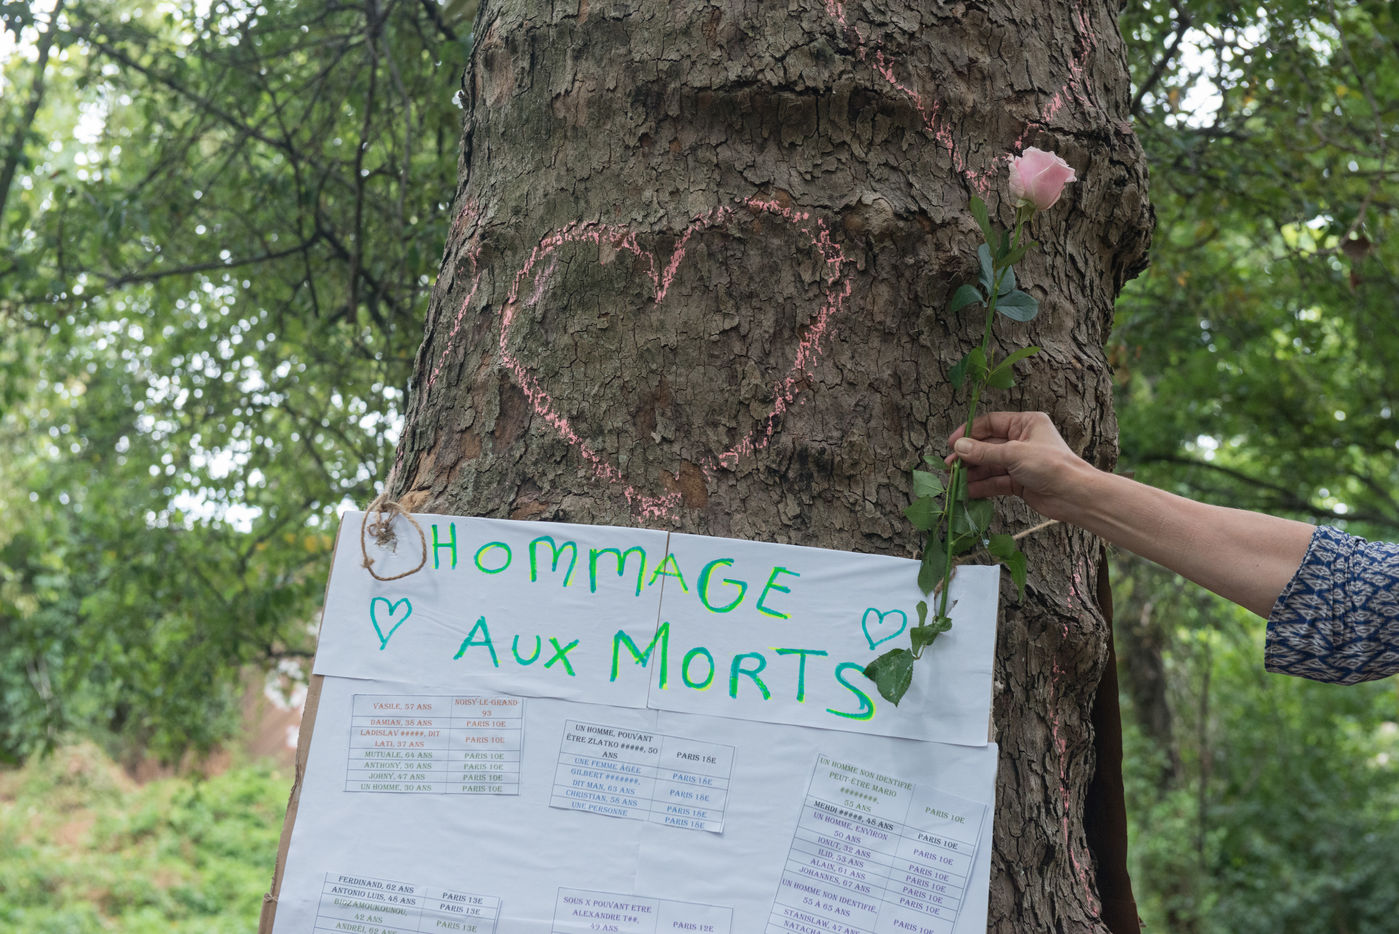 HOMMAGE
AUX MORTS
VASILE, 57 ANS NOISY-LE-GRAND
93
DAMIAN, 38 ANS PARIS 10E
LADISLAV #####, DIT
LATI, 37 ANS PARIS 10E
MUTUALE, 64 ANS PARIS 10E
ANTHONY, 36 ANS PARIS 10E
JOHNY, 47 ANS PARIS 10E
UN HOMME, 30 ANS PARIS 10E
UN HOMME, POUVANT
ÊTRE ZLATKO #####, 50
ANS PARIS 18E
UNE FEMME ÂGÉE PARIS 18E
GILBERT #######,
DIT MAN, 63 ANS PARIS 18E
CHRISTIAN, 58 ANS PARIS 18E
UNE PERSONNE PARIS 18E
UN HOMME NON IDENTIFIÉ
PEUT-ÊTRE MARIO
########,
55 ANS PARIS 10E
MEHDI #####, 48 ANS PARIS 10E
UN HOMME, ENVIRON
50 ANS PARIS 10E
IONUT, 32 ANS PARIS 10E
ILID, 53 ANS PARIS 10E
ALAIN, 61 ANS PARIS 10E
JOHANNES, 67 ANS PARIS 10E
UN HOMME NON IDENTIFIÉ,
55 À 65 ANS PARIS 10E
STANISLAW, 47 ANS
NATACHA
FERDINAND, 62 ANS PARIS 13E
ANTONIO LUIS, 48 ANS PARIS 13E
42 ANS PARIS 13E
ANDRÉI, 62 ANS PARIS 13E
SOUS X POUVANT ETRE
ALEXANDRE T##,
49 ANS PARIS 12E